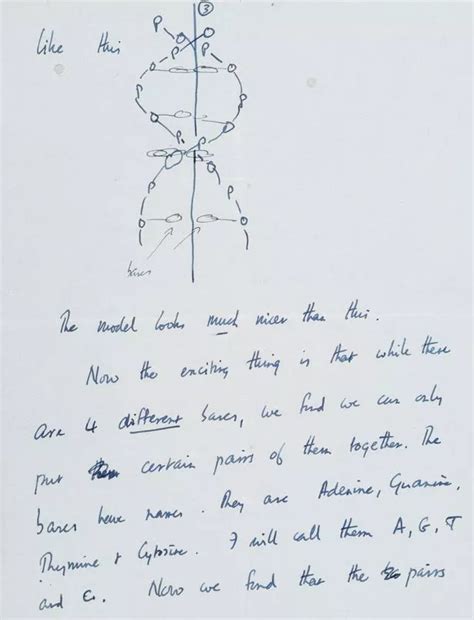 ③
like this
P P
P P
P P
P P
bases
The model looks much nicer than this.
Now the exciting thing is that while there
are 4 different bases, we find we can only
put certain pairs of them together. The
bases have names. They are Adenine, Guanine,
Thymine & Cytosine. I will call them A, G, T
and C. Now we find that the pairs